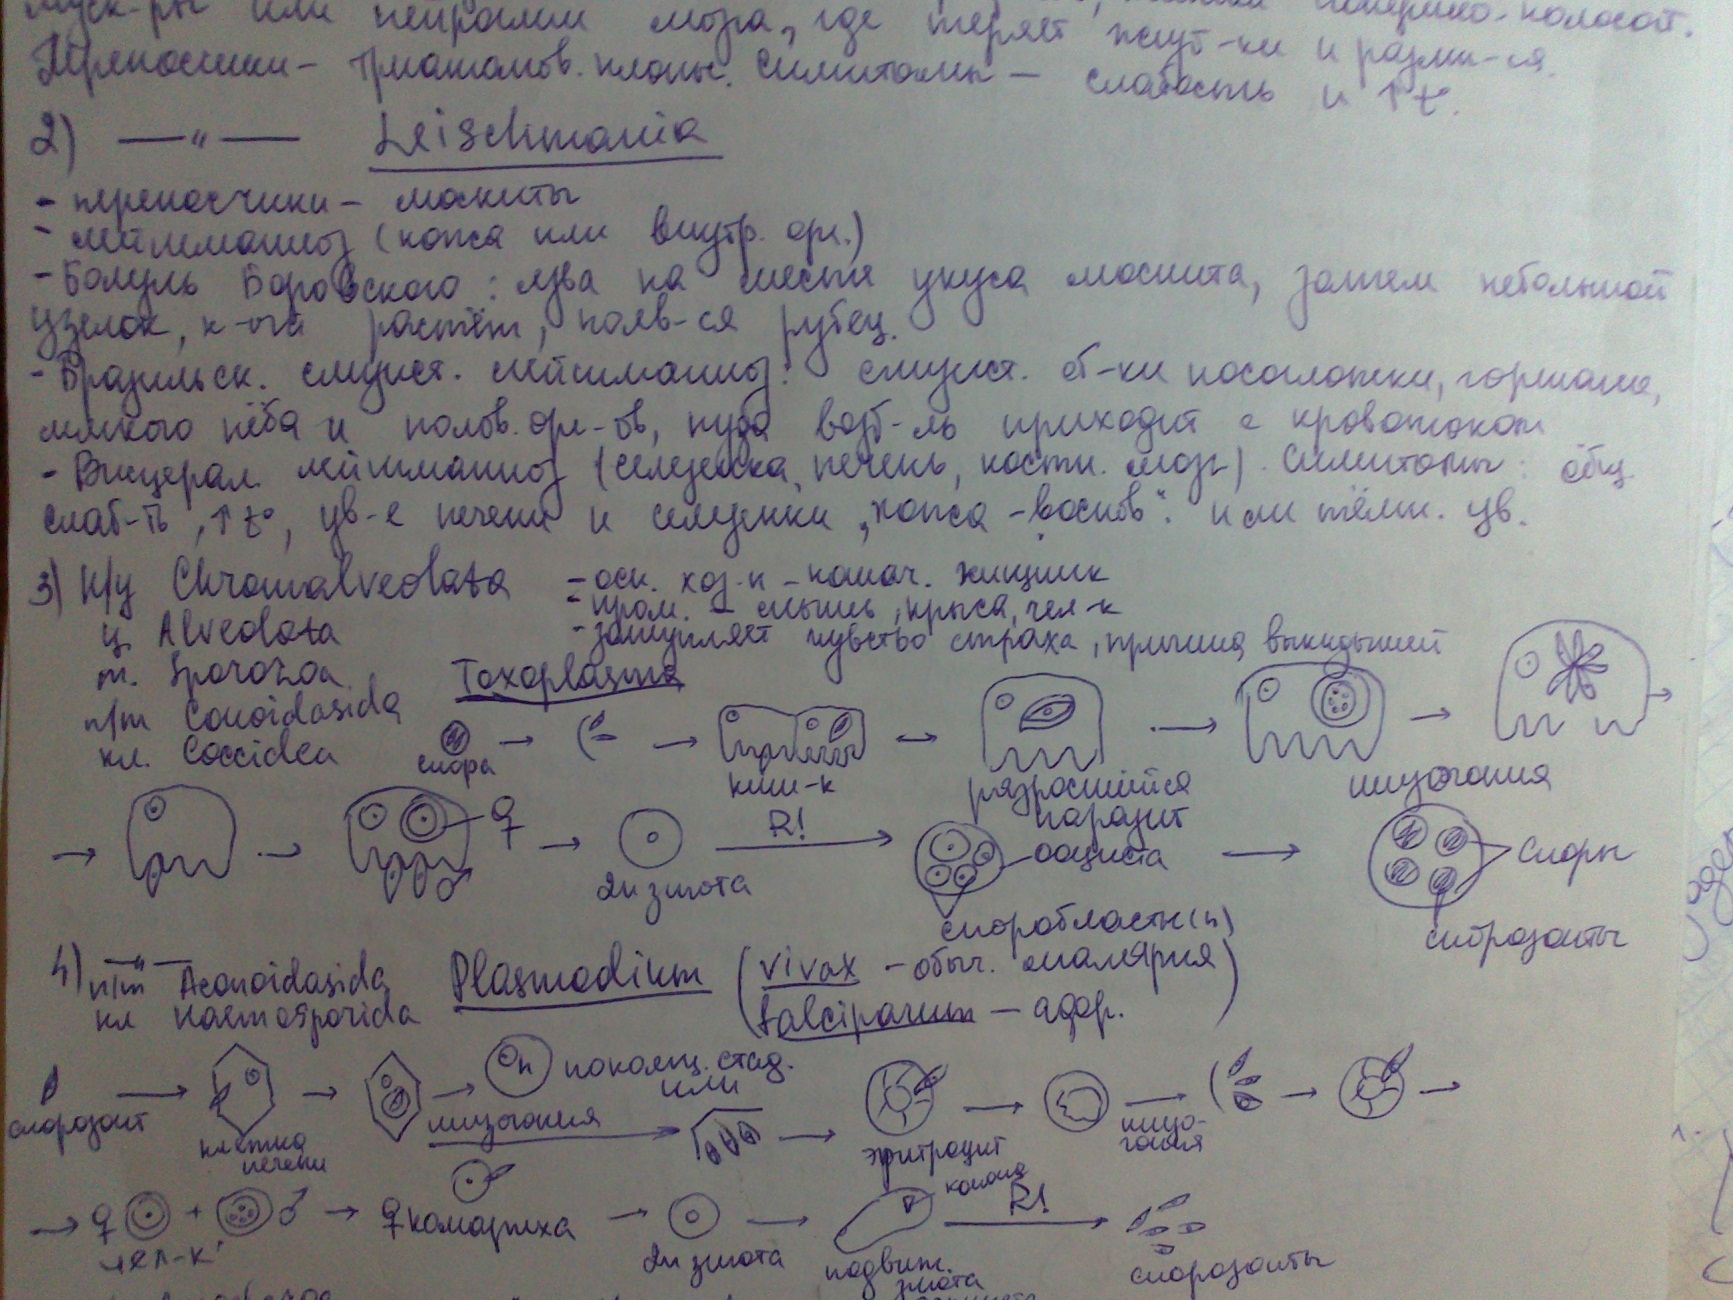 или нейронами мозга, где теряет жгут-ки и разми-ся.
Переносчики – триатомов. клопы. Симптомы – слабость и ↑t°.
2) —"— Leischmania
- переносчики – москиты
- лейшманиоз (кожа или внутр. орг.)
- Болезнь Боровского: язва на месте укуса москита, затем небольшой
узелок, к-ый растёт, появ-ся рубец.
- Бразильск. слизист. лейшманиоз: слизист. об-ки носоглотки, гортани,
мягкого нёба и полов. орг-ов, куда возб-ль приходит с кровотоком
- Висцерал. лейшманиоз (селезёнка, печень, костн. мозг). Симптомы: общ.
слаб-ть, ↑t°, ув-е печени и селезёнки, или тёмн. цв.
3) н/ц Chromalveolata - осн. хоз-н – кошач. хищник
- пром. – мышь, крыса, чел-к
ц. Alveolata - запугляет чувство страха, причина выкидышей
т. Sporozoa Toxoplasma
п/т Conoidasida
кл. Coccidea
спора → → киш-к → разросшийся паразит → шизогония →
→ → ♀ ♂ → 2n зигота R! → ооциста → споры
споробласты (n) спорозоиты
4) —"—
п/т Aconoidasida Plasmodium (vivax – обыч. малярия
кл Haemosporida falciparum – афр.)
спорозоит → клетка печени → → n покоящ. стад.
или
шизогония → → эритроцит → → шизо-гония → →
→ ♀ + ♂ → ♀ комариха → → R! →
чел-к 2n зигота подвиж. зигота спорозоиты